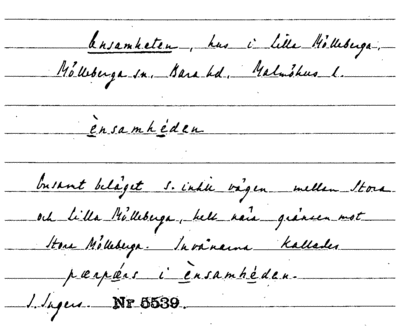 Ensamheten, hus i Lilla Mölleberga,
Mölleberga sn, Bara hd, Malmöhus l.
ènsamhéden
Ensamt beläget s. intill vägen mellan Stora
och Lilla Mölleberga, helt nära gränsen mot
Stora Mölleberga. Invånarna kallades
pærpæ̀rs i ènsamhéden.
I. Ingers. Nr 5539.